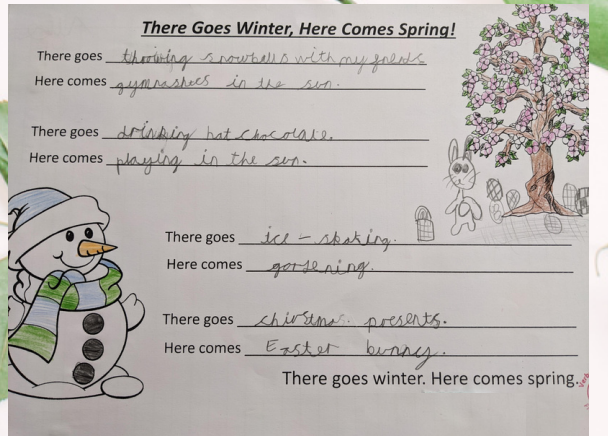 There Goes Winter, Here Comes Spring!
There goes throwing snowballs with my friends
Here comes gymnastics in the sun.
There goes drinking hot chocolate.
Here comes playing in the sun.
There goes ice-skating.
Here comes
There goes presents.
Here comes Easter bunny.
There goes winter. Here comes spring.